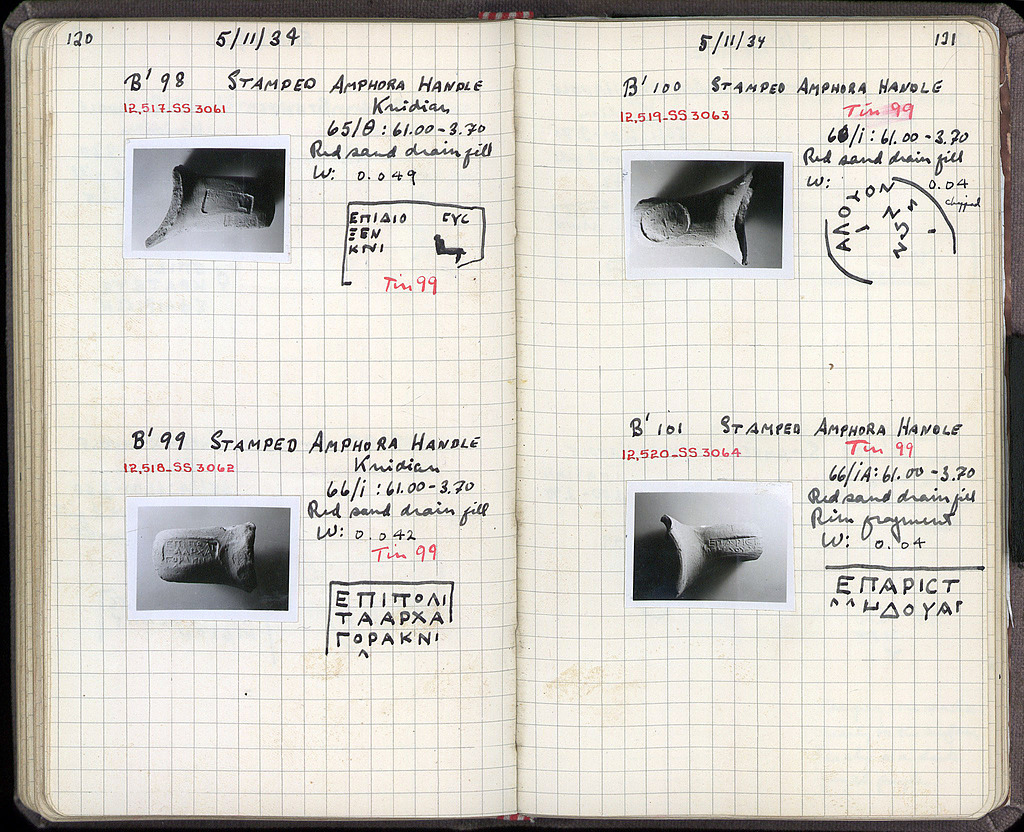 120
5/11/34
B' 98 STAMPED AMPHORA HANDLE
12,517-SS 3061
Knidian
65/Θ : 61.00-3.70
Red sand drain fill
W: 0.049
ΕΠΙΔΙΟ ΕΥC
ΞΕΝ
ΚΝΙ
Tin 99
B' 99 STAMPED AMPHORA HANDLE
12,518-SS 3062
Knidian
66/i : 61.00-3.70
Red sand drain fill
W: 0.042
Tin 99
ΕΠΙΠΟΛΙ
ΤΑΑΡΧΑ
ΓΟΡΑΚΝΙ
5/11/34
121
B' 100 STAMPED AMPHORA HANDLE
12,519-SS 3063
Tin 99
66/i : 61.00-3.70
Red sand drain fill
W: 0.04
chipped
B' 101 STAMPED AMPHORA HANDLE
12,520-SS 3064
Tin 99
66/iA : 61.00-3.70
Red sand drain fill
Rim fragment
W: 0.04
ΕΠΑΡΙCΤ